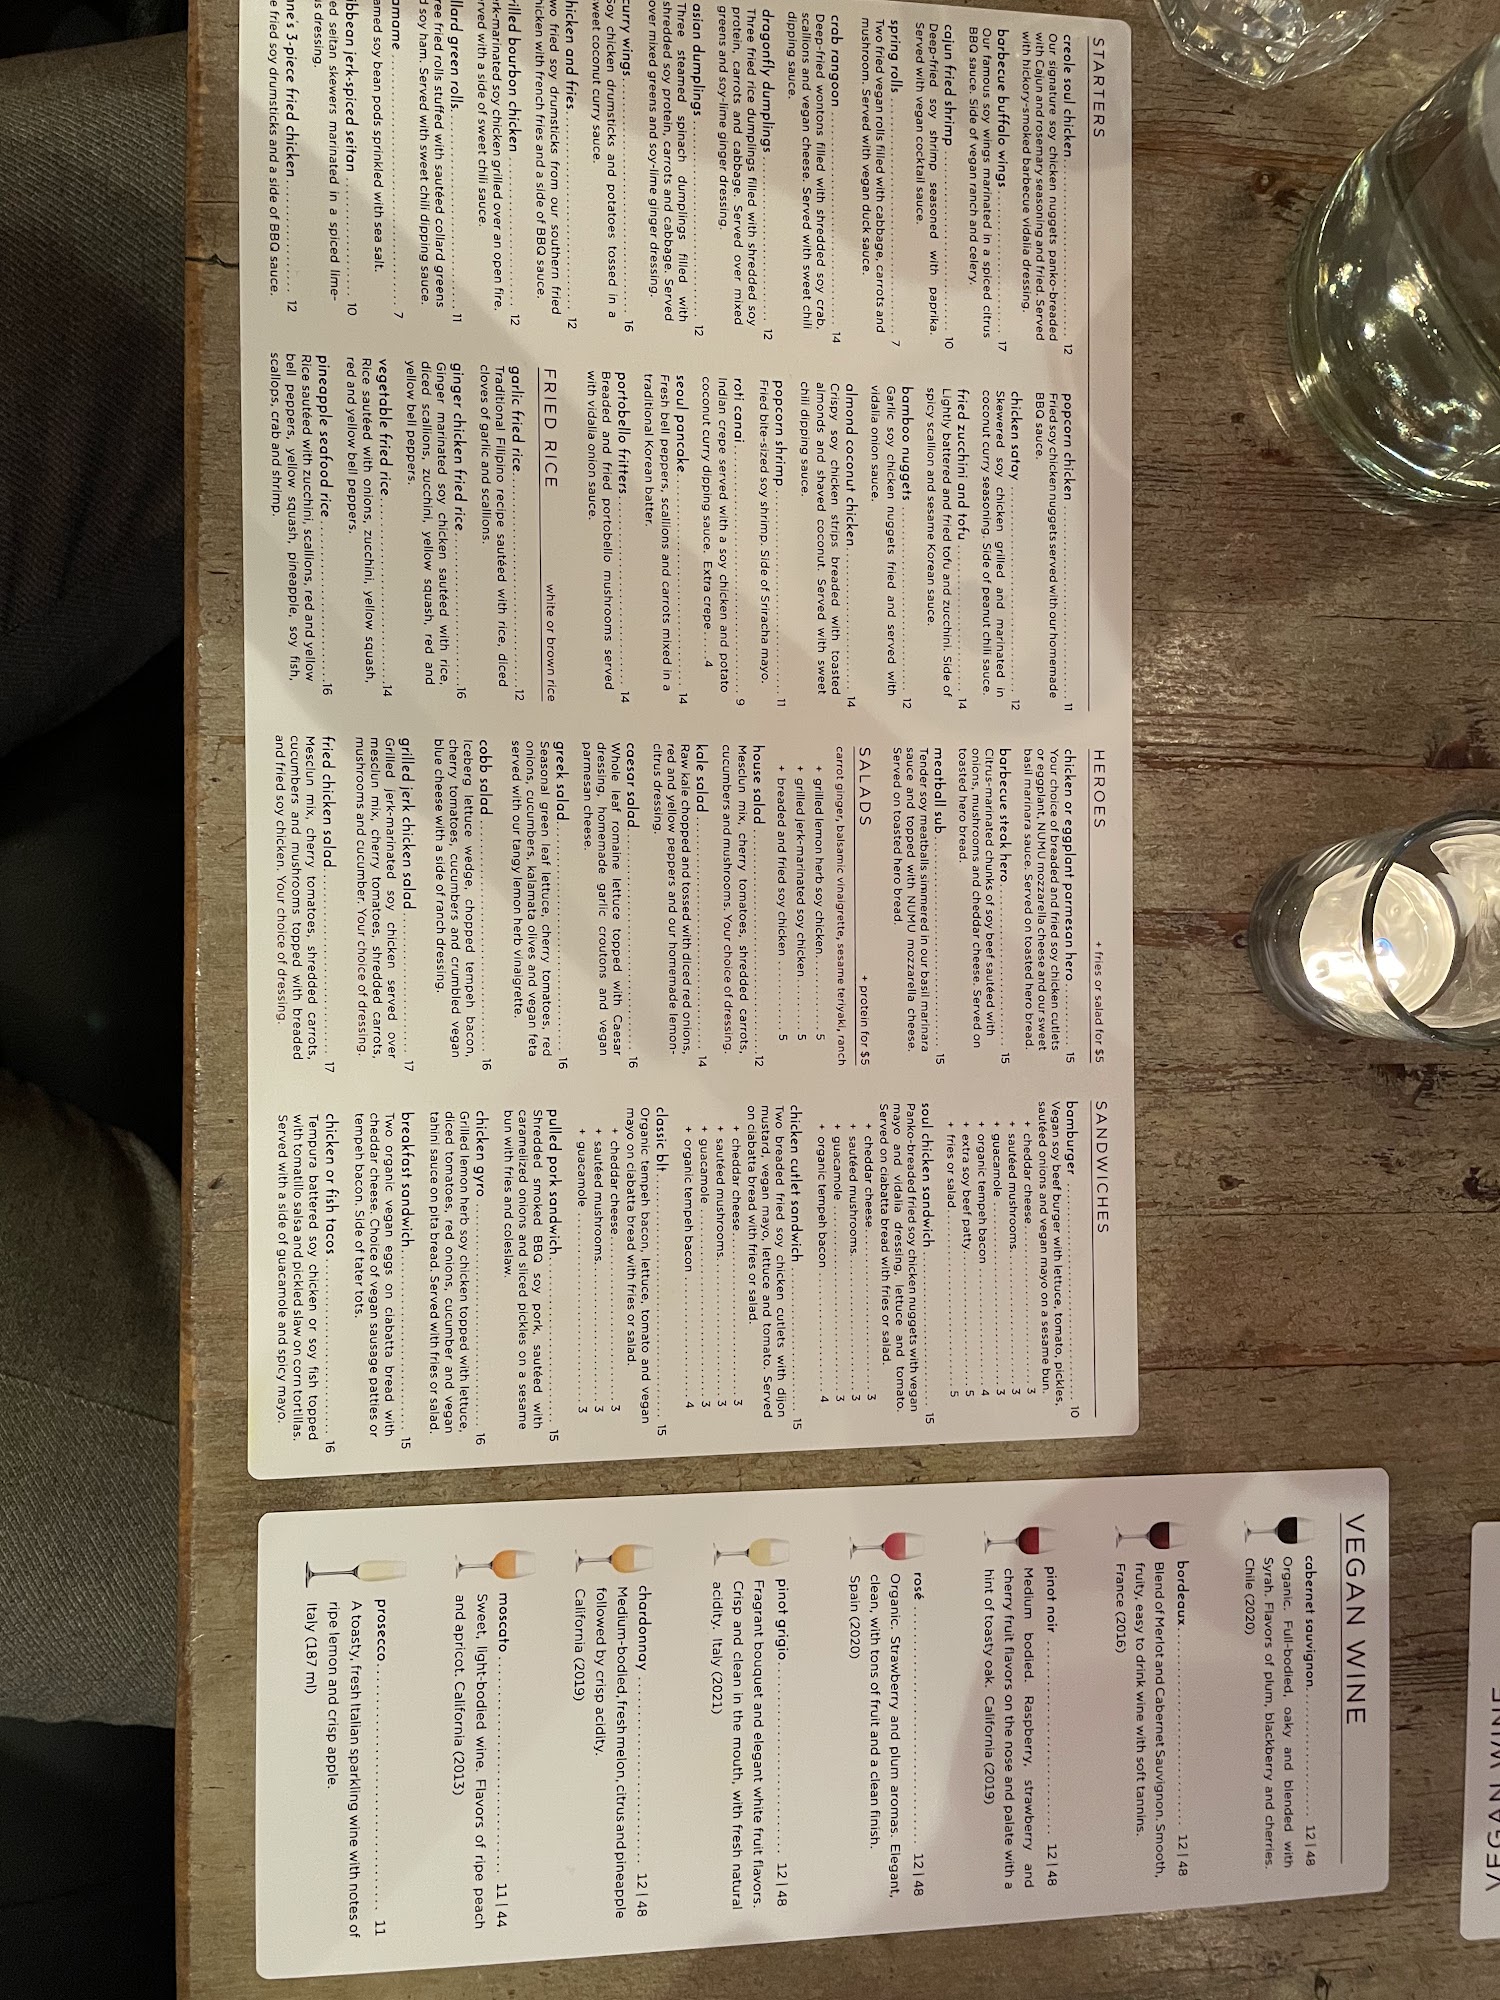 STARTERS
creole soul chicken 12
Our signature soy chicken nuggets panko-breaded
with Cajun and rosemary seasoning and fried. Served
with hickory-smoked barbecue vidalia dressing.
barbecue buffalo wings 17
Our famous soy wings marinated in a spiced citrus
BBQ sauce. Side of vegan ranch and celery.
cajun fried shrimp 10
Deep-fried soy shrimp seasoned with paprika.
Served with vegan cocktail sauce.
spring rolls 7
Two fried vegan rolls filled with cabbage, carrots and
mushroom. Served with vegan duck sauce.
crab rangoon 14
Deep-fried wontons filled with shredded soy crab,
scallions and vegan cheese. Served with sweet chili
dipping sauce.
dragonfly dumplings 12
Three fried rice dumplings filled with shredded soy
protein, carrots and cabbage. Served over mixed
greens and soy-lime ginger dressing.
asian dumplings 12
Three steamed spinach dumplings filled with
shredded soy protein, carrots and cabbage. Served
over mixed greens and soy-lime ginger dressing.
curry wings 16
Soy chicken drumsticks and potatoes tossed in a
sweet coconut curry sauce.
chicken and fries 12
Two fried soy drumsticks from our southern fried
chicken with french fries and a side of BBQ sauce.
grilled bourbon chicken 12
rk-marinated soy chicken grilled over an open fire.
rved with a side of sweet chili sauce.
llard green rolls 11
ree fried rolls stuffed with sautéed collard greens
d soy ham. Served with sweet chili dipping sauce.
amame 7
amed soy bean pods sprinkled with sea salt.
ibbean jerk-spiced seitan 10
ed seitan skewers marinated in a spiced lime-
s dressing.
ane's 3-piece fried chicken 12
e fried soy drumsticks and a side of BBQ sauce.
popcorn chicken 11
Fried soy chicken nuggets served with our homemade
BBQ sauce.
chicken satay 12
Skewered soy chicken grilled and marinated in
coconut curry seasoning. Side of peanut chili sauce.
fried zucchini and tofu 14
Lightly battered and fried tofu and zucchini. Side of
spicy scallion and sesame Korean sauce.
bamboo nuggets 12
Garlic soy chicken nuggets fried and served with
vidalia onion sauce.
almond coconut chicken 14
Crispy soy chicken strips breaded with toasted
almonds and shaved coconut. Served with sweet
chili dipping sauce.
popcorn shrimp 11
Fried bite-sized soy shrimp. Side of Sriracha mayo.
roti canai 9
Indian crepe served with a soy chicken and potato
coconut curry dipping sauce. Extra crepe ...4
seoul pancake 14
Fresh bell peppers, scallions and carrots mixed in a
traditional Korean batter.
portobello fritters 14
Breaded and fried portobello mushrooms served
with vidalia onion sauce.
FRIED RICE white or brown rice
garlic fried rice 12
Traditional Filipino recipe sautéed with rice, diced
cloves of garlic and scallions.
ginger chicken fried rice 16
Ginger marinated soy chicken sautéed with rice,
diced scallions, zucchini, yellow squash, red and
yellow bell peppers.
vegetable fried rice 14
Rice sautéed with onions, zucchini, yellow squash,
red and yellow bell peppers.
pineapple seafood rice 16
Rice sautéed with zucchini, scallions, red and yellow
bell peppers, yellow squash, pineapple, soy fish,
scallops, crab and shrimp.
HEROES + fries or salad for $5
chicken or eggplant parmesan hero 15
Your choice of breaded and fried soy chicken cutlets
or eggplant, NUMU mozzarella cheese and our sweet
basil marinara sauce. Served on toasted hero bread.
barbecue steak hero 15
Citrus-marinated chunks of soy beef sautéed with
onions, mushrooms and cheddar cheese. Served on
toasted hero bread.
meatball sub 15
Tender soy meatballs simmered in our basil marinara
sauce and topped with NUMU mozzarella cheese.
Served on toasted hero bread.
SALADS + protein for $5
carrot ginger, balsamic vinaigrette, sesame teriyaki, ranch
+ grilled lemon herb soy chicken 5
+ grilled jerk-marinated soy chicken 5
+ breaded and fried soy chicken 5
house salad 12
Mesclun mix, cherry tomatoes, shredded carrots,
cucumbers and mushrooms. Your choice of dressing.
kale salad 14
Raw kale chopped and tossed with diced red onions,
red and yellow peppers and our homemade lemon-
citrus dressing.
caesar salad 16
Whole leaf romaine lettuce topped with Caesar
dressing, homemade garlic croutons and vegan
parmesan cheese.
greek salad 16
Seasonal green leaf lettuce, cherry tomatoes, red
onions, cucumbers, kalamata olives and vegan feta
served with our tangy lemon herb vinaigrette.
cobb salad 16
Iceberg lettuce wedge, chopped tempeh bacon,
cherry tomatoes, cucumbers and crumbled vegan
blue cheese with a side of ranch dressing.
grilled jerk chicken salad 17
Grilled jerk-marinated soy chicken served over
mesclun mix, cherry tomatoes, shredded carrots,
mushrooms and cucumber. Your choice of dressing.
fried chicken salad 17
Mesclun mix, cherry tomatoes, shredded carrots,
cucumbers and mushrooms topped with breaded
and fried soy chicken. Your choice of dressing.
SANDWICHES
bamburger 10
Vegan soy beef burger with lettuce, tomato, pickles,
sautéed onions and vegan mayo on a sesame bun.
+ cheddar cheese 3
+ sautéed mushrooms 3
+ guacamole 3
+ organic tempeh bacon 4
+ extra soy beef patty 5
+ fries or salad 5
soul chicken sandwich 15
Panko-breaded fried soy chicken nuggets with vegan
mayo and vidalia dressing, lettuce and tomato.
Served on ciabatta bread with fries or salad.
+ cheddar cheese 3
+ sautéed mushrooms 3
+ guacamole 3
+ organic tempeh bacon 4
chicken cutlet sandwich 15
Two breaded fried soy chicken cutlets with dijon
mustard, vegan mayo, lettuce and tomato. Served
on ciabatta bread with fries or salad.
+ cheddar cheese 3
+ sautéed mushrooms 3
+ guacamole 3
+ organic tempeh bacon 4
classic blt 15
Organic tempeh bacon, lettuce, tomato and vegan
mayo on ciabatta bread with fries or salad.
+ cheddar cheese 3
+ sautéed mushrooms 3
+ guacamole 3
pulled pork sandwich 15
Shredded smoked BBQ soy pork, sautéed with
caramelized onions and sliced pickles on a sesame
bun with fries and coleslaw.
chicken gyro 16
Grilled lemon herb soy chicken topped with lettuce,
diced tomatoes, red onions, cucumber and vegan
tahini sauce on pita bread. Served with fries or salad.
breakfast sandwich 15
Two organic vegan eggs on ciabatta bread with
cheddar cheese. Choice of vegan sausage patties or
tempeh bacon. Side of tater tots.
chicken or fish tacos 16
Tempura battered soy chicken or soy fish topped
with tomatillo salsa and pickled slaw on corn tortillas.
Served with a side of guacamole and spicy mayo.
VEGAN WINE
cabernet sauvignon 12 | 48
Organic. Full-bodied, oaky and blended with
Syrah. Flavors of plum, blackberry and cherries.
Chile (2020)
bordeaux 12 | 48
Blend of Merlot and Cabernet Sauvignon. Smooth,
fruity, easy to drink wine with soft tannins.
France (2016)
pinot noir 12 | 48
Medium bodied. Raspberry, strawberry and
cherry fruit flavors on the nose and palate with a
hint of toasty oak. California (2019)
rosé 12 | 48
Organic. Strawberry and plum aromas. Elegant,
clean, with tons of fruit and a clean finish.
Spain (2020)
pinot grigio 12 | 48
Fragrant bouquet and elegant white fruit flavors.
Crisp and clean in the mouth, with fresh natural
acidity. Italy (2021)
chardonnay 12 | 48
Medium-bodied, fresh melon, citrus and pineapple
followed by crisp acidity.
California (2019)
moscato 11 | 44
Sweet, light-bodied wine. Flavors of ripe peach
and apricot. California (2013)
prosecco 11
A toasty, fresh Italian sparkling wine with notes of
ripe lemon and crisp apple.
Italy (187 ml)
VEGAN WINE